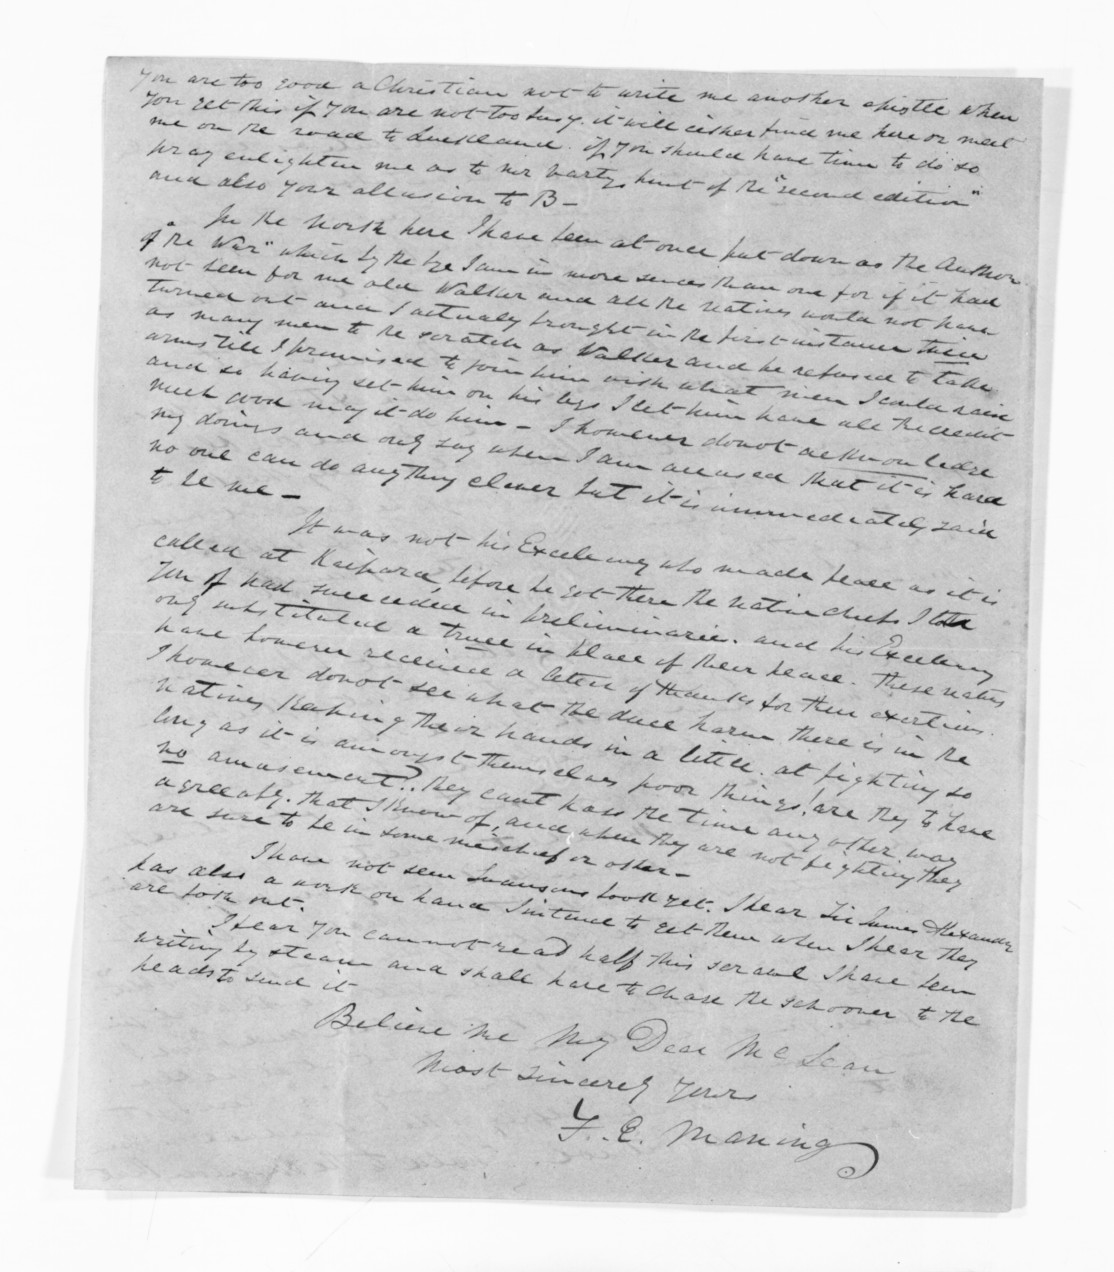 You are too good a Christian not to write me another epistle when
You get this if you are not too busy. it will either find me here or meet
me on the road to Auckland. if you should have time to do so
pray enlighten me as to his hint of the "second edition"
and also your allusion to B—
In the North here I have been at once put down as the Author
of the War" which by the bye I am in more senses than one for if it had
not been for me old Walker and all the Natives would not have
turned out and I actually brought in the first instance twice
as many men to the scratch as Walker and he refused to take
arms till I promised to join him with what men I could raise
and so having set him on his legs I let him have all the credit
much good may it do him — I however do not acknowledge
my doings and only say when I am accused that it is hard
no one can do anything clever but it is immediately said
to be me —
It was not his Excellency who made peace as it is
called at Kaipara, before he got there the native chiefs I told
you of had succeeded in preliminaries. and his Excellency
only substituted a truce in place of their peace. These natives
have however received a letter of thanks for their exertions.
I however do not see what the duce harm there is in the
Natives keeping their hands in a little. at fighting so
long as it is amongst themselves poor things! are they to have
no amusement? they cant pass the time any other way
agreeably. that I know of, and when they are not fighting they
are sure to be in some mischief or other —
I have not seen Swansons book yet. I hear Sir James Alexander
has also a work on hand I intend to get them when I hear they
are both out.
I fear you cannot read half this scrawl I have been
writing by steam and shall have to chase the schooner to the
heads to send it
Believe me My Dear McLean
Most Sincerely Yours
F. E. Maning